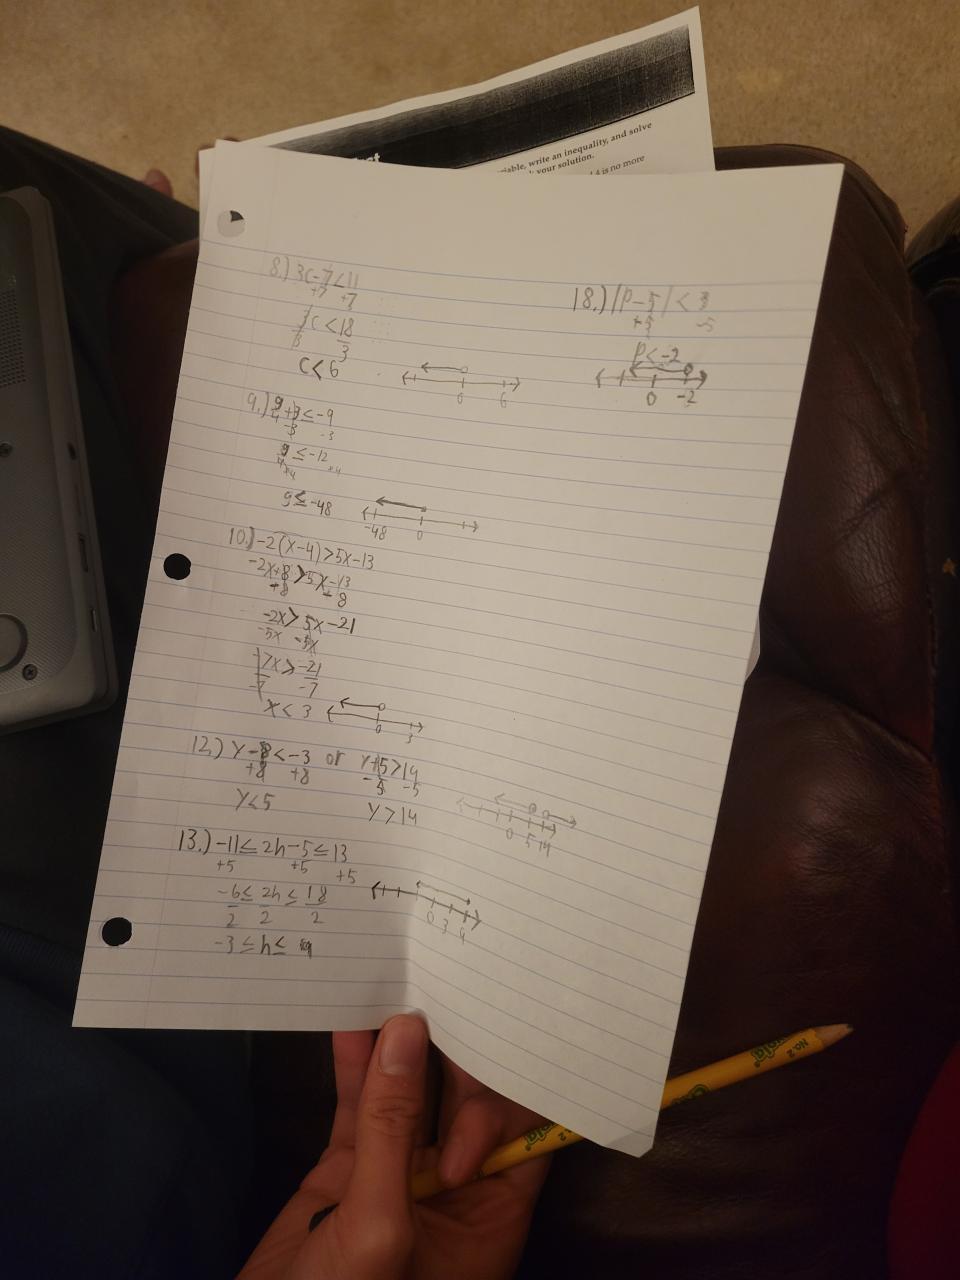 iable, write an inequality, and solve
your solution.
4 is no more
8.) 3c-7<11
+7 +7
3c<18
3 3
c<6
0 6
9.) g/4+3≤-9
-3 -3
g/4≤-12
×4 ×4
g≤-48
-48 0
10.) -2(x-4)>5x-13
-2x+8>5x-13
-8 -8
-2x>5x-21
-5x -5x
-7x>-21
-7 -7
x<3
0 3
12.) y-8<-3 or y+5>14
+8 +8 -5 -5
y<5 y>14
0 5 14
13.) -11≤2h-5≤13
+5 +5 +5
-6≤2h≤18
2 2 2
-3≤h≤9
0 3 9
18.) |p-5|<3
+5 -5
p<-2
0 -2
No.2
Crayola
No.2